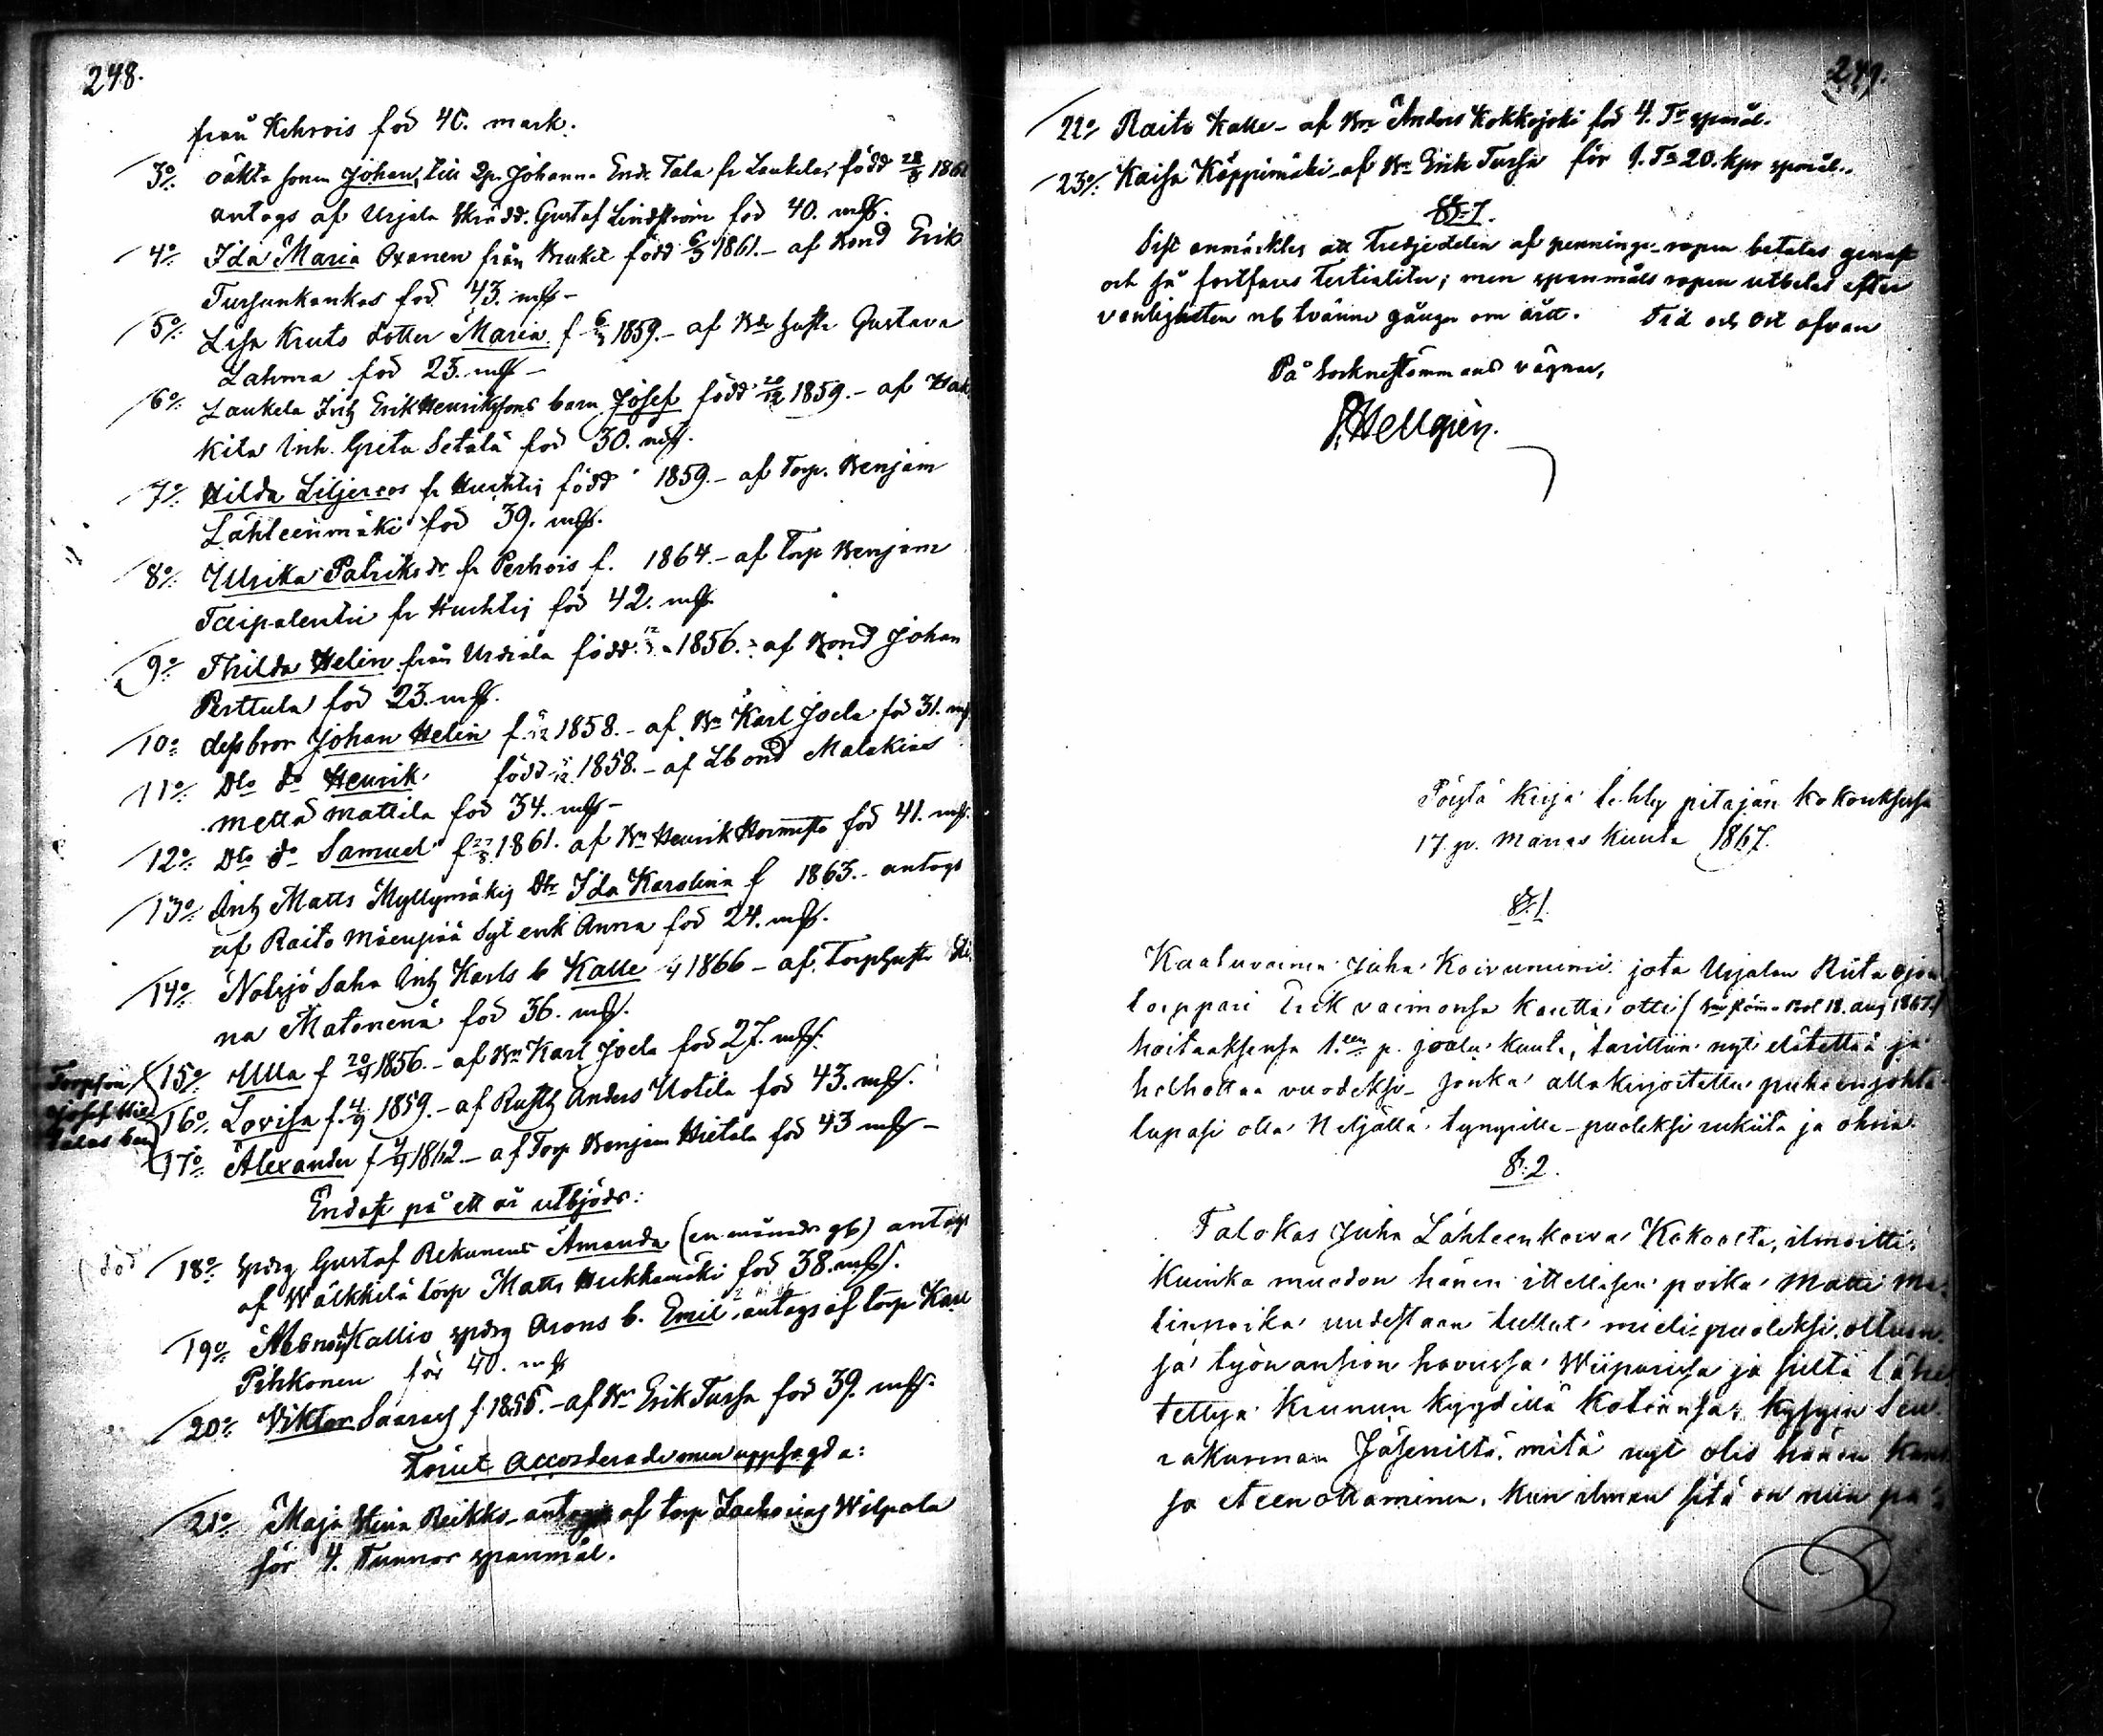 248.
från Kehrois föd 40. mark.
3o/: oäkta sonen Johan, till Pp. Johanna End. Tala fr Laukela, född 28/8 186
antogs af Urjala Skrädd. Gustaf Lindström föd 40. mk.
4o/: Ida Maria Oxanen från Brukit född 6/5 1861. - af Bond Erik
Tursunkankas föd 43. mk -
5o/: Lisa Kruts dotter Maria f 6/3 1859. - af Bde hustr Gustava
Lahma föd 23. mk -
6o/: Laukela Inh Erik Henrikssons barn Josef född 20/12 1859. - af
kila Inh. Greta Setälä föd 30. mk.
7o/: Hilda Liljeroos fr Huhtij född 1859. - af Torp. Benjam
Lähteenmäki föd 39. mk.
8o/: Ulrika Patriksdr fr Perhois f. 1864. - af torp Benjam
Taipalentu fr Huhtij föd 42. mk
9o/: Thilda Helin från Urdiala född 1856. - af Bond Johan
Perttula föd 23. mk.
10o/: dess bror Johan Helin f. 1858. - af Bn Karl Joela föd 31. mk
11o/: Dto do Henrik född 1858. - af Lbond Malakias
mettä mattila föd 34. mk -
12o/: Dto do Samuel f 27/8 1861. af Bn Henrik Hormisto föd 41. mk.
13o/: Inh Matts Myllymäkis Dtr Ida Karolina f 1863. - antogs
af Raito Mäenpää Syt enk Anna föd 24. mk.
14o/: Nolsjö Saha Inh Karls b Kalle 1866 - af Torphustr
na Matonenä föd 36. mk.
Torpson
Josef
Talas barn
15o/: Ulla f 20/4 1856. - af Bn Karl Joela föd 27. mk.
16o/: Lovisa f. 4/9 1859. - af Rusth Anders Uotila föd 43. mk.
17o/: Alexander f 4/4 1862 - af Torp Benjam Hietala föd 43 mk -
Endast på ett år utbjöds:
död
18o/: Spdrg Gustaf Rekunens Amanda (en månads gb) antogs
af Wälkkilä torp Matts Hukkamäki föd 38. mk.
19o/: Kallio spdrg Arons b. Emil, antogs af torp Karl
Pihkonen för 40. mk
20o/: Viktor Saaras f 1856. - af Bn Erik Tursa föd 39. mk.
Förut accorderade men uppsagda:
21o/: Maja Stina Reikko - antogs af torp Zacharias Wilpola
för 4. Tunnor spanmål.
249.
22o/: Raito Kalle - af Bn Anders Kokkojoki föd 4. Tr spmål.
23o/: Kaisa Käppimäki - af Bn Erik Tursa för 1. Ta 20. kpr spmål.
§: 7.
Sist anmärktes att tredjedelen af pennings-ropen betalas genast
och så fortfares tertialiter; men spanmåls ropen utbetas efter
vanligheten nb tvänne gånger om året. Tid och Ort ofvan
På Sockneståmmans vägnar,
Hellgrén.
Pöytä kirja tehty pitäjän kokouksessa
17. p. marras kuuta 1867.
§: 1.
Kaatuvainen Juha Koivuniemi jota Urjalan Riitaojan
torppari Erik vaimonsa kautta otti 18. aug 1867.
hoitaaksensa 1.en p. joulu kuuta, tarittiin nyt elätettää ja
helhottaa vuodeksi - jonka allakirjoitettu puheenjohta
lupasi olla Neljällä tynyrillä - puoleksi rukiita ja ohria.
§: 2.
Talokas Juha Lähteenkorva Kokoolta, ilmoitti
kuinka muodon hänen ittellisen poika Matti Ma
tinpoika uudestaan tullut mielipuoleksi oltuan
sa työn ansion haussa Wiipurissa ja sieltä lähe
tettyä Kruunun kyydillä kotiansa; kysyin Seu
rakunnan Jäseniltä mitä nyt olis hänen kans
sa eteen ottaminen, kun ilman sitä on niin pa